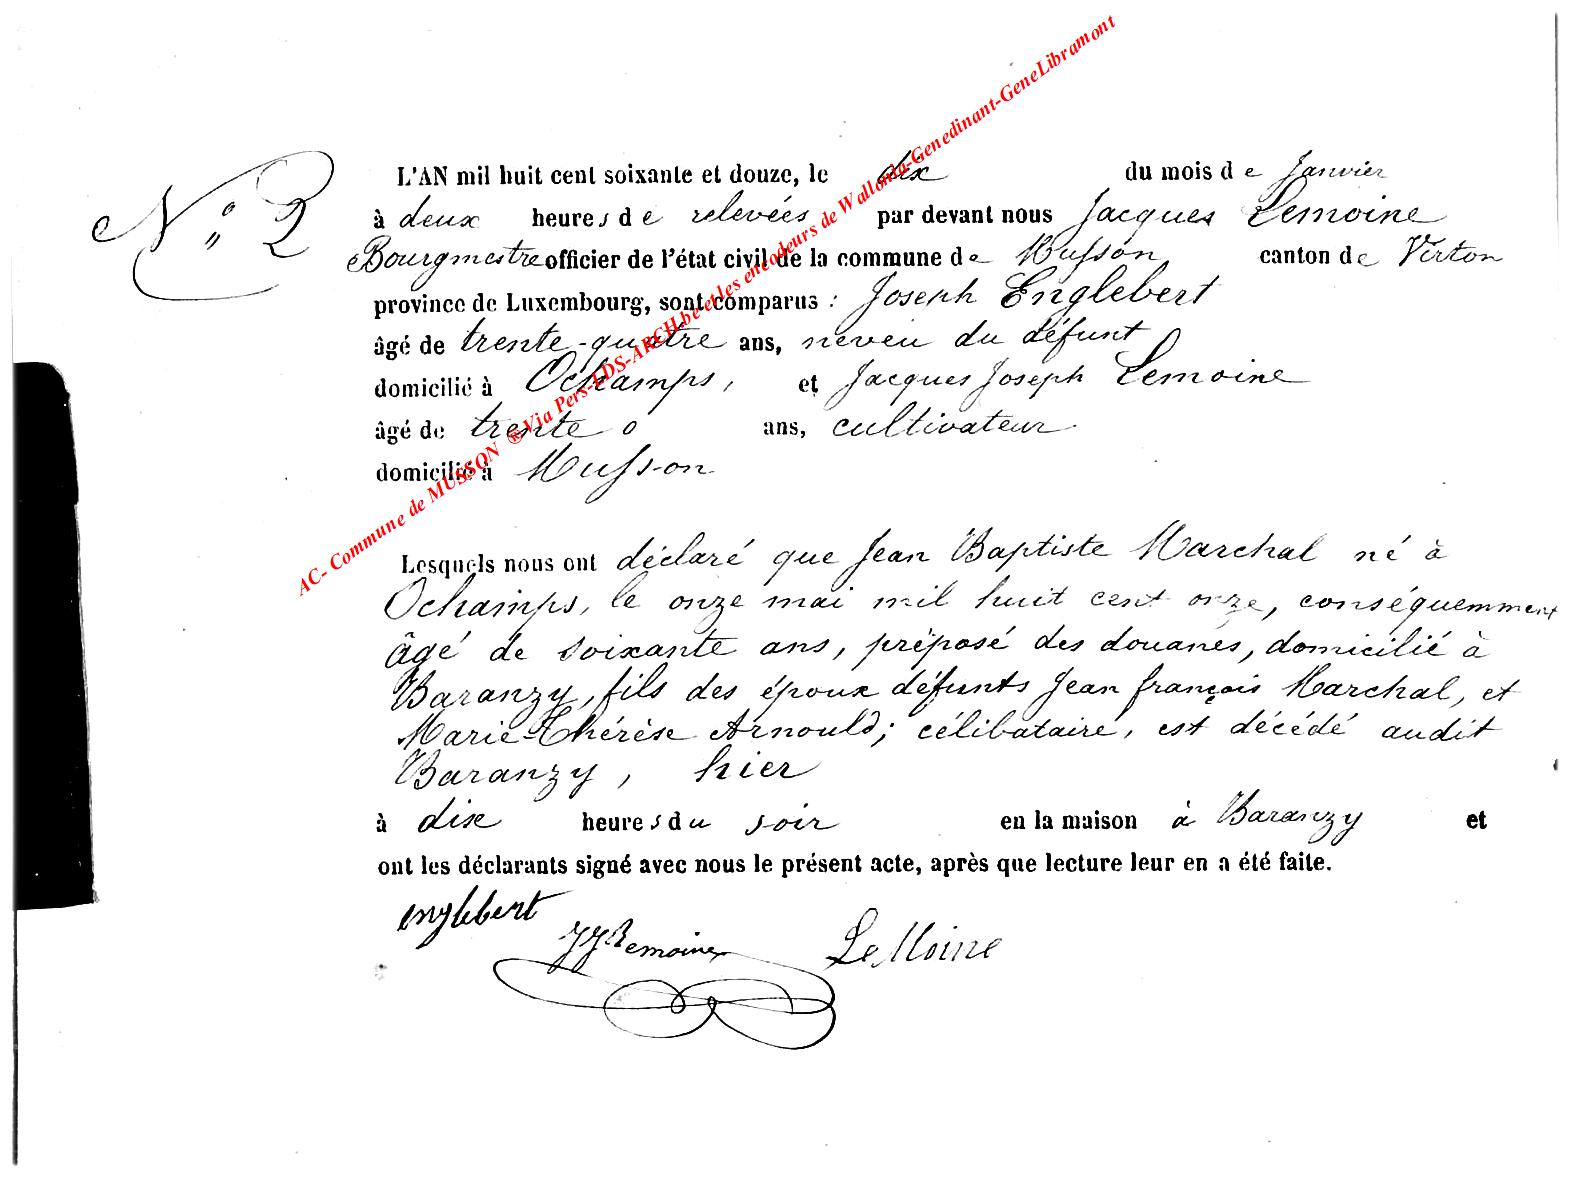 N° 2
L'AN mil huit cent soixante et douze, le dix du mois de Janvier
à deux heures de relevées par devant nous Jacques Lemoine
Bourgmestre officier de l'état civil de la commune de Musson canton de Virton
province de Luxembourg, sont comparus : Joseph Englebert
âgé de trente-quatre ans, neveu du défunt
domicilié à Ochamps, et Jacques Joseph Lemoine
âgé de trente o ans, cultivateur
domicilié à Musson
Lesquels nous ont déclaré que Jean Baptiste Marchal né à
Ochamps, le onze mai mil huit cent onze, conséquemment
âgé de soixante ans, préposé des douanes, domicilié à
Baranzy, fils des époux défunts Jean françois Marchal, et
Marie-Thérèse Arnould; célibataire, est décédé audit
Baranzy, hier
à dix heures du soir en la maison à Baranzy et
ont les déclarants signé avec nous le présent acte, après que lecture leur en a été faite.
Englebert
JJLemoine LeMoine
AC- Commune de MUSSON ®Via Pers-LDS-ARCH.be et les encodeurs de Wallonia-Genedinant-GeneLibramont